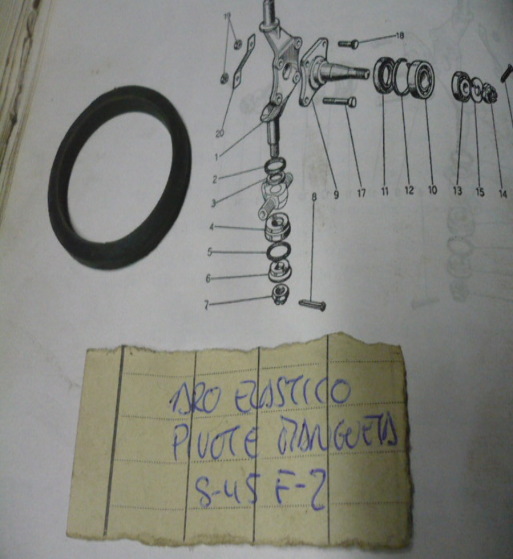 19
18
20
1
2
3
8
9
17
11
12
10
13
15
14
4
5
6
7
ARO ELASTICO
PIVOTE MANGUETA
S-45 F-2